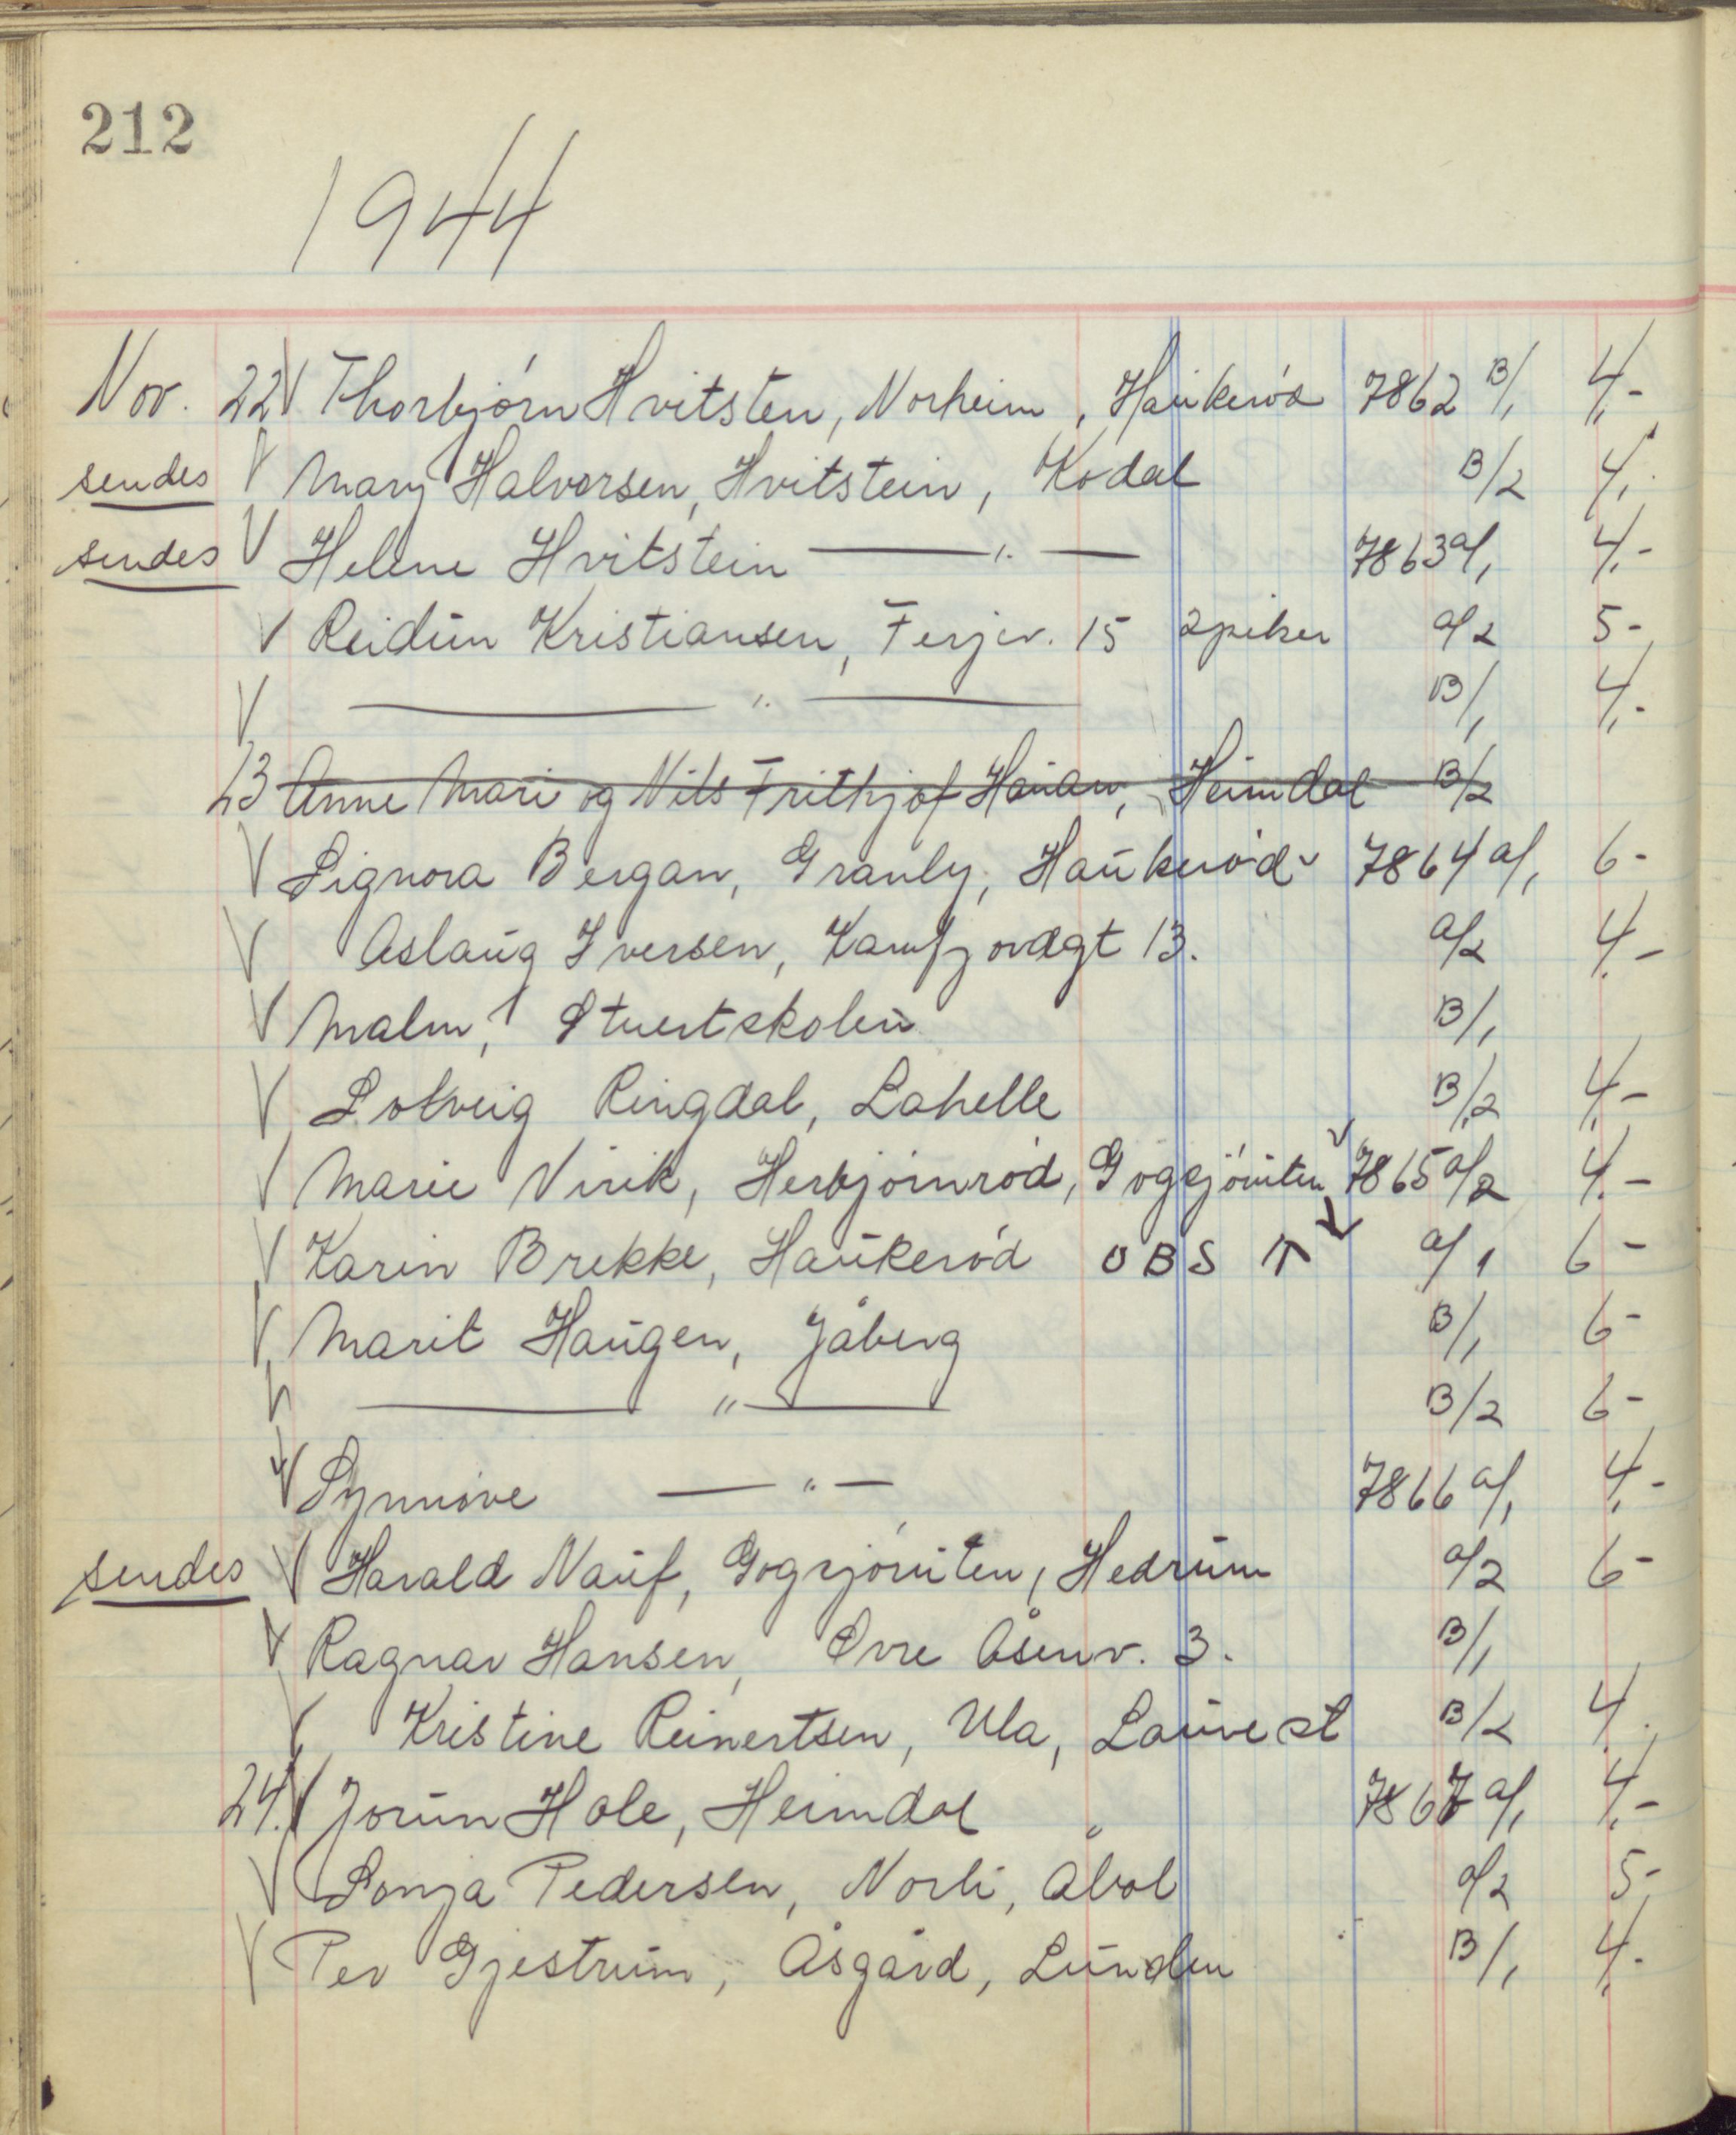 212
1944
Nov. 22 V Thorbjørn Hvitsten, Norheim, Haukerød 7862 B/1 4,-
sendes V Mary Halvorsen, Hvitstein, Kodal B/2 4,-
sendes V Helene Hvitstein — " — 7863 a/1 4,-
V Reidun Kristiansen, Ferjev. 15 2 piker a/2 5-
V — " — B/1 4,-
23 Anne Mari og Nils Frithjof Hauan, Heimdal B/2
V Signora Bergan, Granly, Haukerød v 7864 a/1 6-
V Aslaug Iversen, Kamfjordgt 13. a/2 4,-
V Malm, Stuertskolen B/1
V Solveig Ringdal, Lahelle B/2 4,-
V Marie Virik, Herbjørnrød, Gogsjøruten 7865 a/2 4,-
V Karin Brekke, Haukerød OBS ↑ a/1 6-
V Marit Haugen, Jåberg B/1 6-
V — " — B/2 6-
V Synnøve — " — 7866 a/1 4,-
sendes V Harald Nauf, Gogsjøruten, Hedrum a/2 6-
V Ragnar Hansen, Øvre Åsenv. 3. B/1
V Kristine Reinertsen, Ula, Lauve st B/2 4.
24. V Jorun Hole, Heimdal " 7867 a/1 4,-
V Sonja Pedersen, Norli, Åbol a/2 5-
V Per Gjestrum, Åsgård, Lunden B/1 4,-